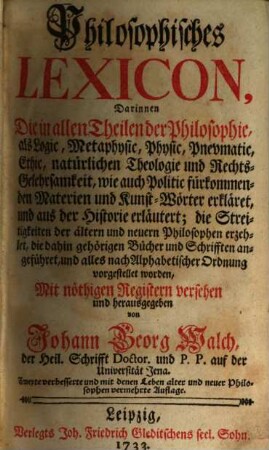 Philosophisches
LEXICON,
Darinnen
Die in allen Theilen der Philosophie,
als Logic, Metaphysic, Physic, Pnevmatic,
Ethic, natürlichen Theologie und Rechts-
Gelehrsamkeit, wie auch Politic fürkommen-
den Materien und Kunst-Wörter erkläret,
und aus der Historie erläutert; die Strei-
tigkeiten der ältern und neuern Philosophen erzeh-
let, die dahin gehörigen Bücher und Schrifften an-
geführet, und alles nach Alphabetischer Ordnung
vorgestellet worden,
Mit nöthigen Registern versehen
und herausgegeben
von
Johann Georg Walch,
der Heil. Schrifft Doctor. und P. P. auf der
Universität Jena.
Zweyte verbesserte und mit denen Leben alter und neuer Philo-
sophen vermehrte Auflage.
Leipzig,
Verlegts Joh. Friedrich Gleditschens seel. Sohn.
1733.